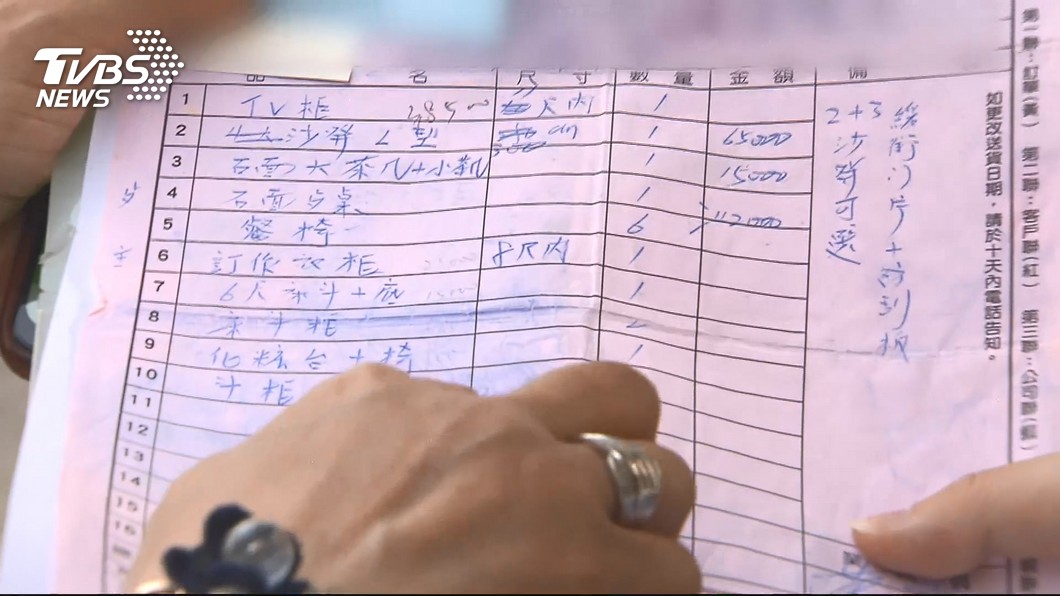 TVBS
NEWS
品名 尺寸 數量 金額 備
1 TV柜 尺內 1
2 沙發L型 1 65000
3 石面大茶几+小茶几 1 15000
4 石面 桌 1
5 餐椅 6
6 訂作衣柜 8尺內 1
7 6尺床斗+底 1
8 床斗柜 2
9 化粧台+椅 1
10 斗柜
11
12
13
14
15
16
2+3沙發可選
緩衝
如更改送貨日期，請於十天內電話告知。
第一聯：訂單(黃) 第二聯：客戶聯(紅) 第三聯：公司聯(藍)